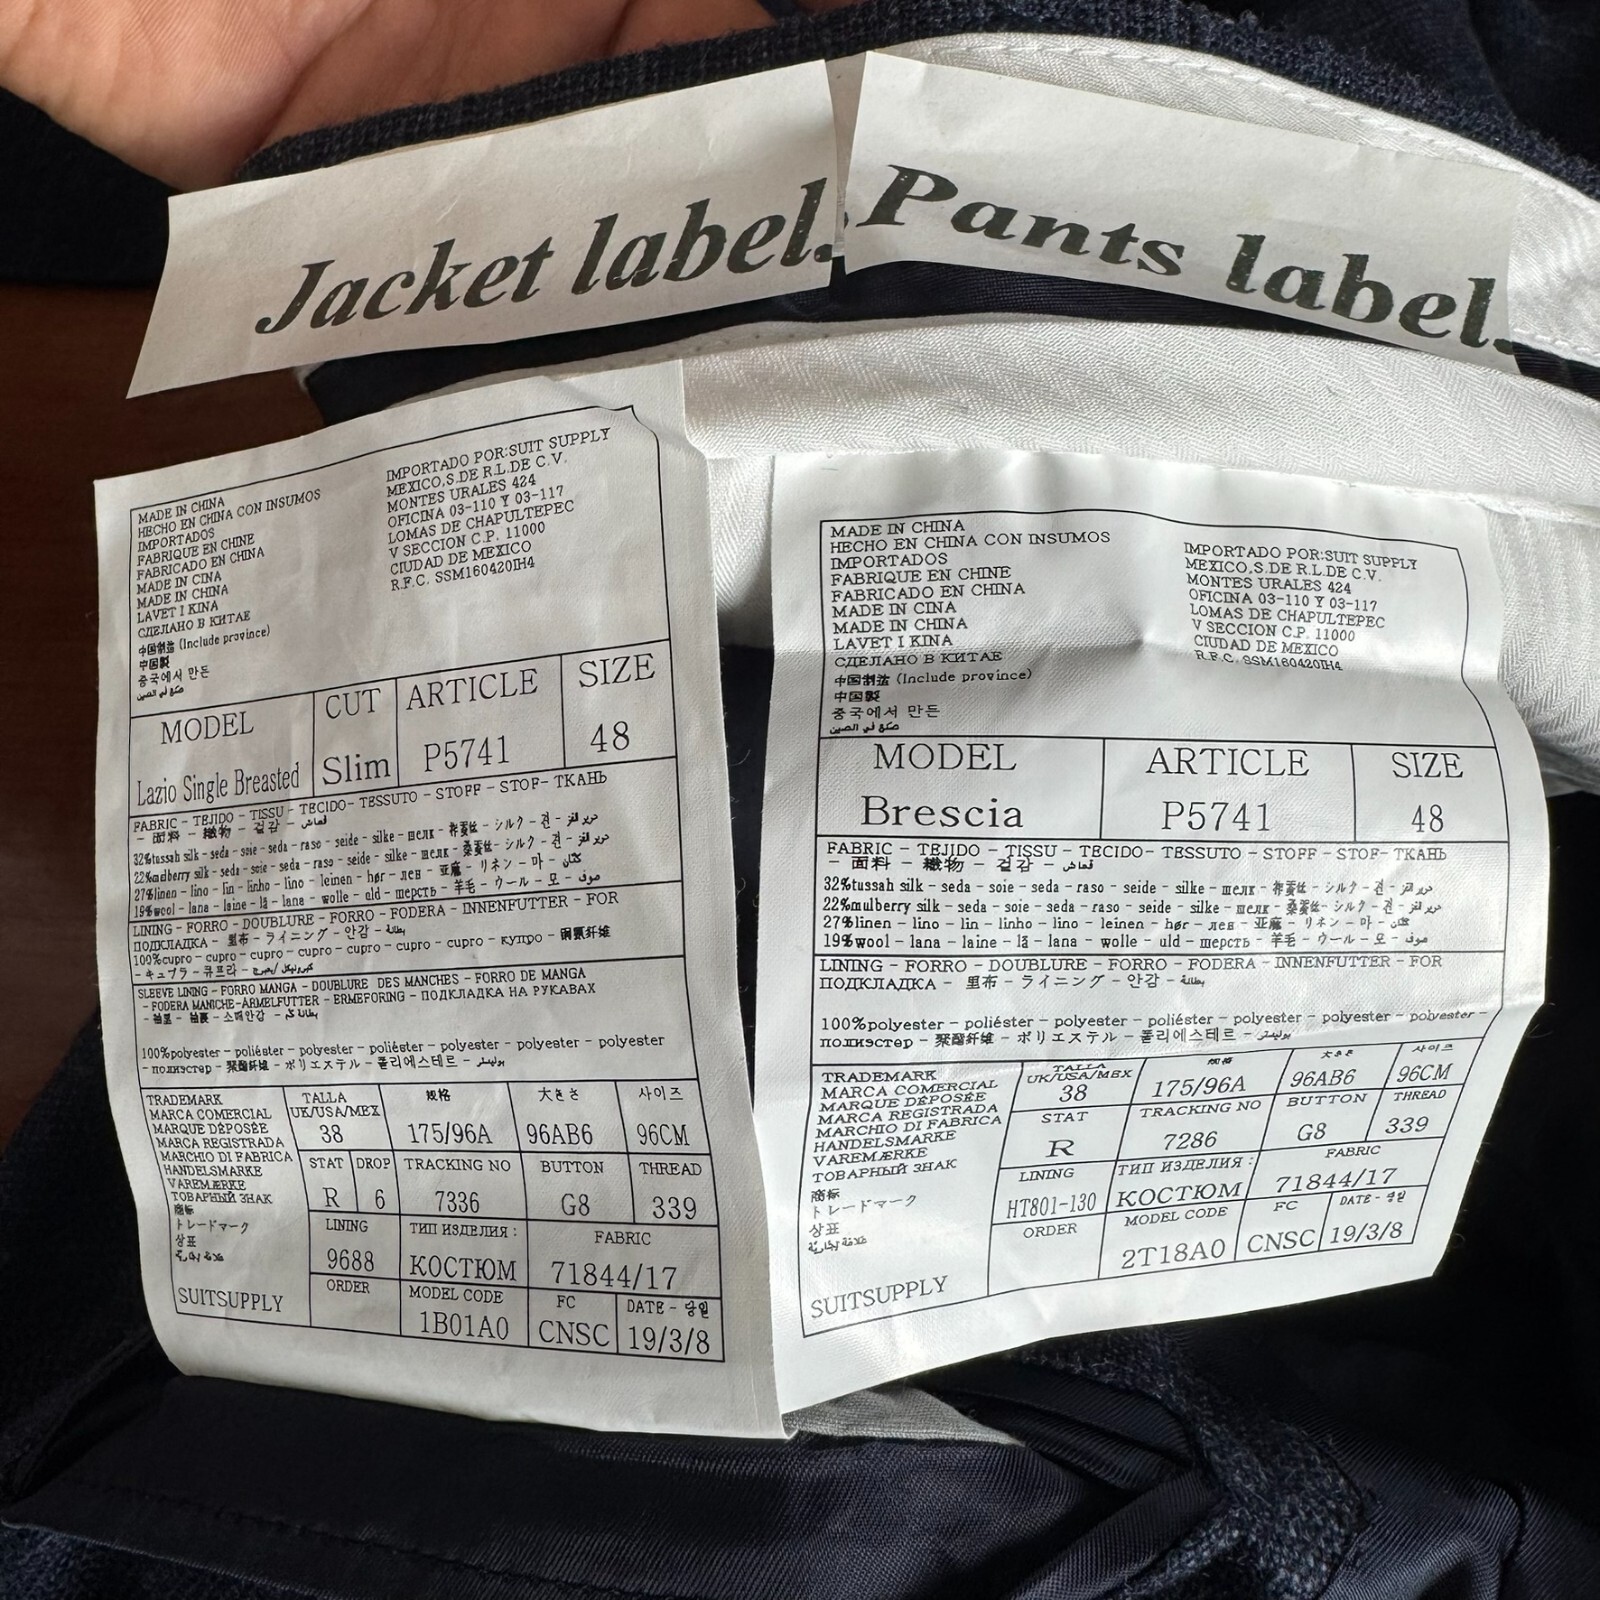 Jacket label.
Pants label.
MADE IN CHINA
HECHO EN CHINA CON INSUMOS
IMPORTADOS
FABRIQUE EN CHINE
FABRICADO EN CHINA
MADE IN CINA
MADE IN CHINA
LAVET I KINA
СДЕЛАНО В КИТАЕ
中国制造 (Include province)
中国製
중국에서 만든
صنع في الصين
IMPORTADO POR:SUIT SUPPLY
MEXICO,S.DE R.L.DE C.V.
MONTES URALES 424
OFICINA 03-110 Y 03-117
LOMAS DE CHAPULTEPEC
V SECCION C.P. 11000
CIUDAD DE MEXICO
R.F.C. SSM160420IH4
MODEL CUT ARTICLE SIZE
Lazio Single Breasted Slim P5741 48
FABRIC - TEJIDO - TISSU - TECIDO- TESSUTO - STOFF - STOF- ТКАНЬ
- 面料 - 織物 - 겉감 - قماش
32%tussah silk - seda - soie - seda - raso - seide - silke - шелк - 柞蚕丝 - シルク - 견 - حرير التز
22%mulberry silk - seda - soie - seda - raso - seide - silke - шелк - 桑蚕丝 - シルク - 견 - حرير التز
27%linen - lino - lin - linho - lino - leinen - hør - лен - 亚麻 - リネン - 마 - كتان
19%wool - lana - laine - lã - lana - wolle - uld - шерсть - 羊毛 - ウール - 모 - صوف
LINING - FORRO - DOUBLURE - FORRO - FODERA - INNENFUTTER - FOR
ПОДКЛАДКА - 里布 - ライニング - 안감 - بطانة
100%cupro - cupro - cupro - cupro - cupro - cupro - cupro - купро - 铜氨纤维
- キュプラ - 큐프라 -
SLEEVE LINING - FORRO MANGA - DOUBLURE DES MANCHES - FORRO DE MANGA
- FODERA MANICHE-ÄRMELFUTTER - ERMEFORING - ПОДКЛАДКА НА РУКАВАХ
- 袖里 - 袖裏 - 소매안감 - بطانة كم
100%polyester - poliéster - polyester - poliéster - polyester - polyester - polyester
- полиэстер - 聚酯纤维 - ポリエステル - 폴리에스테르 - بوليستر
TRADEMARK
MARCA COMERCIAL
MARQUE DÉPOSÉE
MARCA REGISTRADA
MARCHIO DI FABRICA
HANDELSMARKE
VAREMÆRKE
ТОВАРНЫЙ ЗНАК
商标
トレードマーク
상표
علامة تجارية
SUITSUPPLY
TALLA 规格 大きさ 사이즈
UK/USA/MEX
38 175/96A 96AB6 96CM
STAT DROP TRACKING NO BUTTON THREAD
R 6 7336 G8 339
LINING ТИП ИЗДЕЛИЯ : FABRIC
9688 КОСТЮМ 71844/17
ORDER MODEL CODE FC DATE - 당일
1B01A0 CNSC 19/3/8
MADE IN CHINA
HECHO EN CHINA CON INSUMOS
IMPORTADOS
FABRIQUE EN CHINE
FABRICADO EN CHINA
MADE IN CINA
MADE IN CHINA
LAVET I KINA
СДЕЛАНО В КИТАЕ
中国制造 (Include province)
中国製
중국에서 만든
صنع في الصين
IMPORTADO POR:SUIT SUPPLY
MEXICO,S.DE R.L.DE C.V.
MONTES URALES 424
OFICINA 03-110 Y 03-117
LOMAS DE CHAPULTEPEC
V SECCION C.P. 11000
CIUDAD DE MEXICO
R.F.C. SSM160420IH4
MODEL ARTICLE SIZE
Brescia P5741 48
FABRIC - TEJIDO - TISSU - TECIDO- TESSUTO - STOFF - STOF- ТКАНЬ
- 面料 - 織物 - 겉감 - قماش
32%tussah silk - seda - soie - seda - raso - seide - silke - шелк - 柞蚕丝 - シルク - 견 - حرير التز
22%mulberry silk - seda - soie - seda - raso - seide - silke - шелк - 桑蚕丝 - シルク - 견 - حرير التز
27%linen - lino - lin - linho - lino - leinen - hør - лен - 亚麻 - リネン - 마 - كتان
19%wool - lana - laine - lã - lana - wolle - uld - шерсть - 羊毛 - ウール - 모 - صوف
LINING - FORRO - DOUBLURE - FORRO - FODERA - INNENFUTTER - FOR
ПОДКЛАДКА - 里布 - ライニング - 안감 - بطانة
100%polyester - poliéster - polyester - poliéster - polyester - polyester - polyester -
полиэстер - 聚酯纤维 - ポリエステル - 폴리에스테르 - بوليستر
TRADEMARK
MARCA COMERCIAL
MARQUE DÉPOSÉE
MARCA REGISTRADA
MARCHIO DI FABRICA
HANDELSMARKE
VAREMÆRKE
ТОВАРНЫЙ ЗНАК
商标
トレードマーク
상표
علامة تجارية
SUITSUPPLY
TALLA 规格 大きさ 사이즈
UK/USA/MEX
38 175/96A 96AB6 96CM
STAT TRACKING NO BUTTON THREAD
R 7286 G8 339
LINING ТИП ИЗДЕЛИЯ : FABRIC
HT801-130 КОСТЮМ 71844/17
ORDER MODEL CODE FC DATE - 당일
2T18A0 CNSC 19/3/8